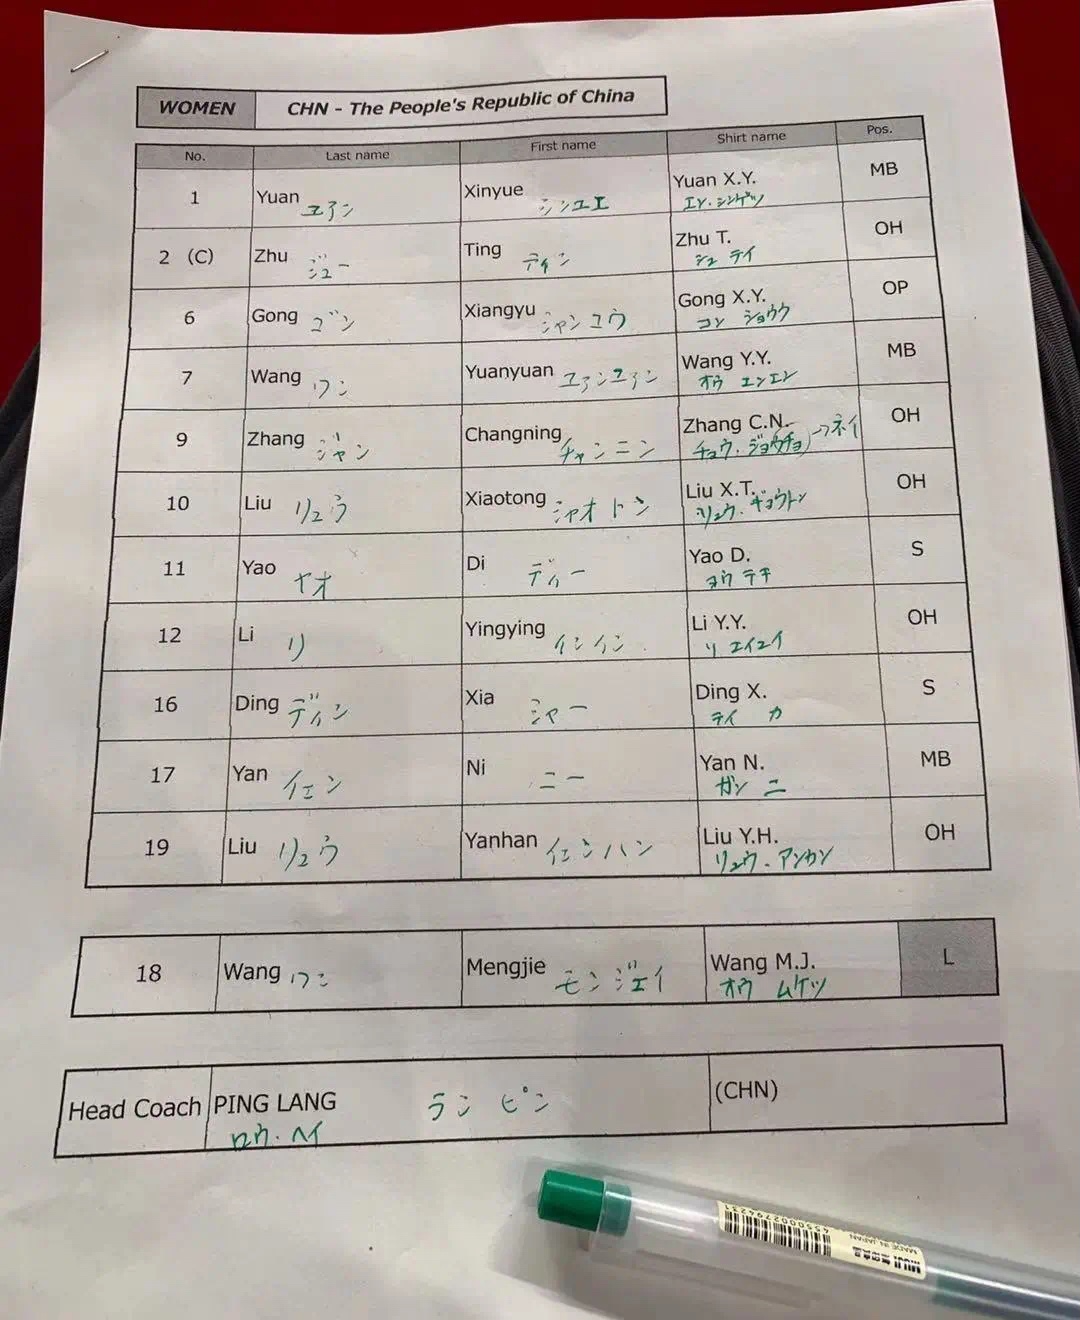 WOMEN CHN - The People's Republic of China
No. Last name First name Shirt name Pos.
1 Yuan ユアン Xinyue シンユエ Yuan X.Y. MB
エン・シンゲツ
2 (C) Zhu ジュー Ting ティン Zhu T. OH
シュ テイ
6 Gong ゴン Xiangyu シャンユウ Gong X.Y. OP
コン ショウウ
7 Wang ワン Yuanyuan ユアンユアン Wang Y.Y. MB
オウ エンエン
9 Zhang ジャン Changning チャンニン Zhang C.N. OH
チョウ・ジョウチョ →ネイ
10 Liu リュウ Xiaotong シャオトン Liu X.T. OH
リュウ・ギョウトン
11 Yao ヤオ Di ディー Yao D. S
ヨウ テキ
12 Li リ Yingying インイン Li Y.Y. OH
リ エイエイ
16 Ding ディン Xia シャー Ding X. S
テイ カ
17 Yan イェン Ni ニー Yan N. MB
ガン ニ
19 Liu リュウ Yanhan イェンハン Liu Y.H. OH
リュウ・アンカン
18 Wang ワン Mengjie モンジェイ Wang M.J. L
オウ ムケツ
Head Coach PING LANG ラン ピン (CHN)
ロウ・ヘイ
MADE IN JAPAN
MUJI 無印良品